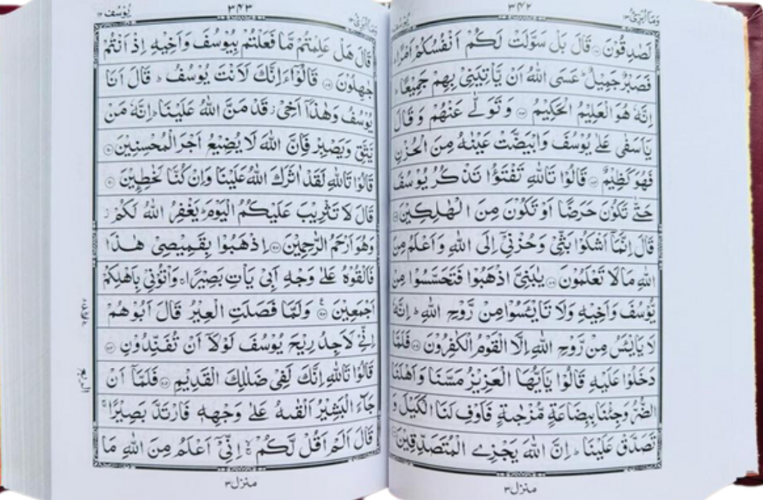 وَمَآ اُبَرِّئُ ١٣
٣٤٢
يُوْسُف ١٢
لَصٰدِقُوْنَ قَالَ بَلْ سَوَّلَتْ لَكُمْ اَنْفُسُكُمْ اَمْرًا
فَصَبْرٌ جَمِيْلٌ عَسَى اللّٰهُ اَنْ يَّاْتِيَنِيْ بِهِمْ جَمِيْعًا
اِنَّهٗ هُوَ الْعَلِيْمُ الْحَكِيْمُ وَتَوَلّٰى عَنْهُمْ وَقَالَ
يٰۤاَسَفٰى عَلٰى يُوْسُفَ وَابْيَضَّتْ عَيْنٰهُ مِنَ الْحُزْنِ
فَهُوَ كَظِيْمٌ قَالُوْا تَاللّٰهِ تَفْتَؤُا تَذْكُرُ يُوْسُفَ
حَتّٰى تَكُوْنَ حَرَضًا اَوْ تَكُوْنَ مِنَ الْهٰلِكِيْنَ
قَالَ اِنَّمَاۤ اَشْكُوْا بَثِّيْ وَحُزْنِيْۤ اِلَى اللّٰهِ وَاَعْلَمُ مِنَ
اللّٰهِ مَا لَا تَعْلَمُوْنَ يٰبَنِيَّ اذْهَبُوْا فَتَحَسَّسُوْا مِنْ
يُّوْسُفَ وَاَخِيْهِ وَلَا تَايْـَٔسُوْا مِنْ رَّوْحِ اللّٰهِ اِنَّهٗ
لَا يَايْـَٔسُ مِنْ رَّوْحِ اللّٰهِ اِلَّا الْقَوْمُ الْكٰفِرُوْنَ فَلَمَّا
دَخَلُوْا عَلَيْهِ قَالُوْا يٰۤاَيُّهَا الْعَزِيْزُ مَسَّنَا وَاَهْلَنَا
الضُّرُّ وَجِئْنَا بِبِضَاعَةٍ مُّزْجٰىةٍ فَاَوْفِ لَنَا الْكَيْلَ وَ
تَصَدَّقْ عَلَيْنَا اِنَّ اللّٰهَ يَجْزِي الْمُتَصَدِّقِيْنَ
منزل ٣
وَمَآ اُبَرِّئُ ١٣
٣٤٣
يُوْسُف ١٢
قَالَ هَلْ عَلِمْتُمْ مَّا فَعَلْتُمْ بِيُوْسُفَ وَاَخِيْهِ اِذْ اَنْتُمْ
جٰهِلُوْنَ قَالُوْۤا ءَاِنَّكَ لَاَنْتَ يُوْسُفُ قَالَ اَنَا
يُوْسُفُ وَهٰذَاۤ اَخِيْ قَدْ مَنَّ اللّٰهُ عَلَيْنَا اِنَّهٗ مَنْ
يَّتَّقِ وَيَصْبِرْ فَاِنَّ اللّٰهَ لَا يُضِيْعُ اَجْرَ الْمُحْسِنِيْنَ
قَالُوْا تَاللّٰهِ لَقَدْ اٰثَرَكَ اللّٰهُ عَلَيْنَا وَاِنْ كُنَّا لَخٰطِـِٕيْنَ
قَالَ لَا تَثْرِيْبَ عَلَيْكُمُ الْيَوْمَ يَغْفِرُ اللّٰهُ لَكُمْ
وَهُوَ اَرْحَمُ الرّٰحِمِيْنَ اِذْهَبُوْا بِقَمِيْصِيْ هٰذَا
فَاَلْقُوْهُ عَلٰى وَجْهِ اَبِيْ يَاْتِ بَصِيْرًا وَاْتُوْنِيْ بِاَهْلِكُمْ
اَجْمَعِيْنَ وَلَمَّا فَصَلَتِ الْعِيْرُ قَالَ اَبُوْهُمْ
اِنِّيْ لَاَجِدُ رِيْحَ يُوْسُفَ لَوْلَاۤ اَنْ تُفَنِّدُوْنِ
قَالُوْا تَاللّٰهِ اِنَّكَ لَفِيْ ضَلٰلِكَ الْقَدِيْمِ فَلَمَّاۤ اَنْ
جَآءَ الْبَشِيْرُ اَلْقٰىهُ عَلٰى وَجْهِهٖ فَارْتَدَّ بَصِيْرًا
قَالَ اَلَمْ اَقُلْ لَّكُمْ اِنِّيْۤ اَعْلَمُ مِنَ اللّٰهِ مَا
منزل ٣